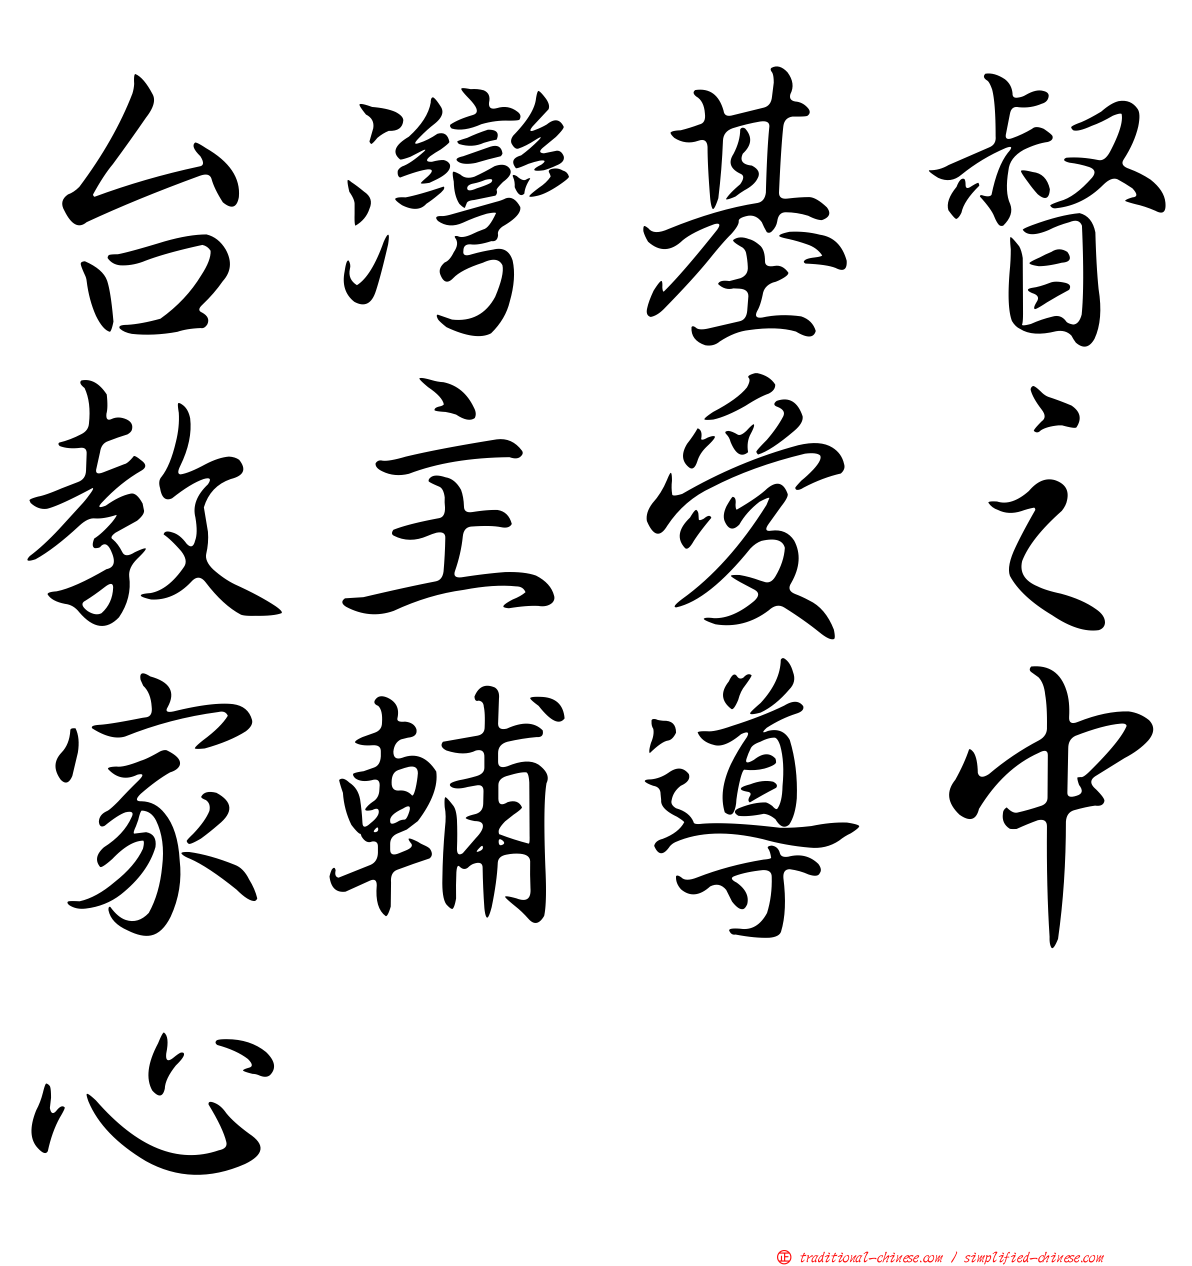 台灣基督
教主愛之
家輔導中
心
正 traditional-chinese.com / simplified-chinese.com